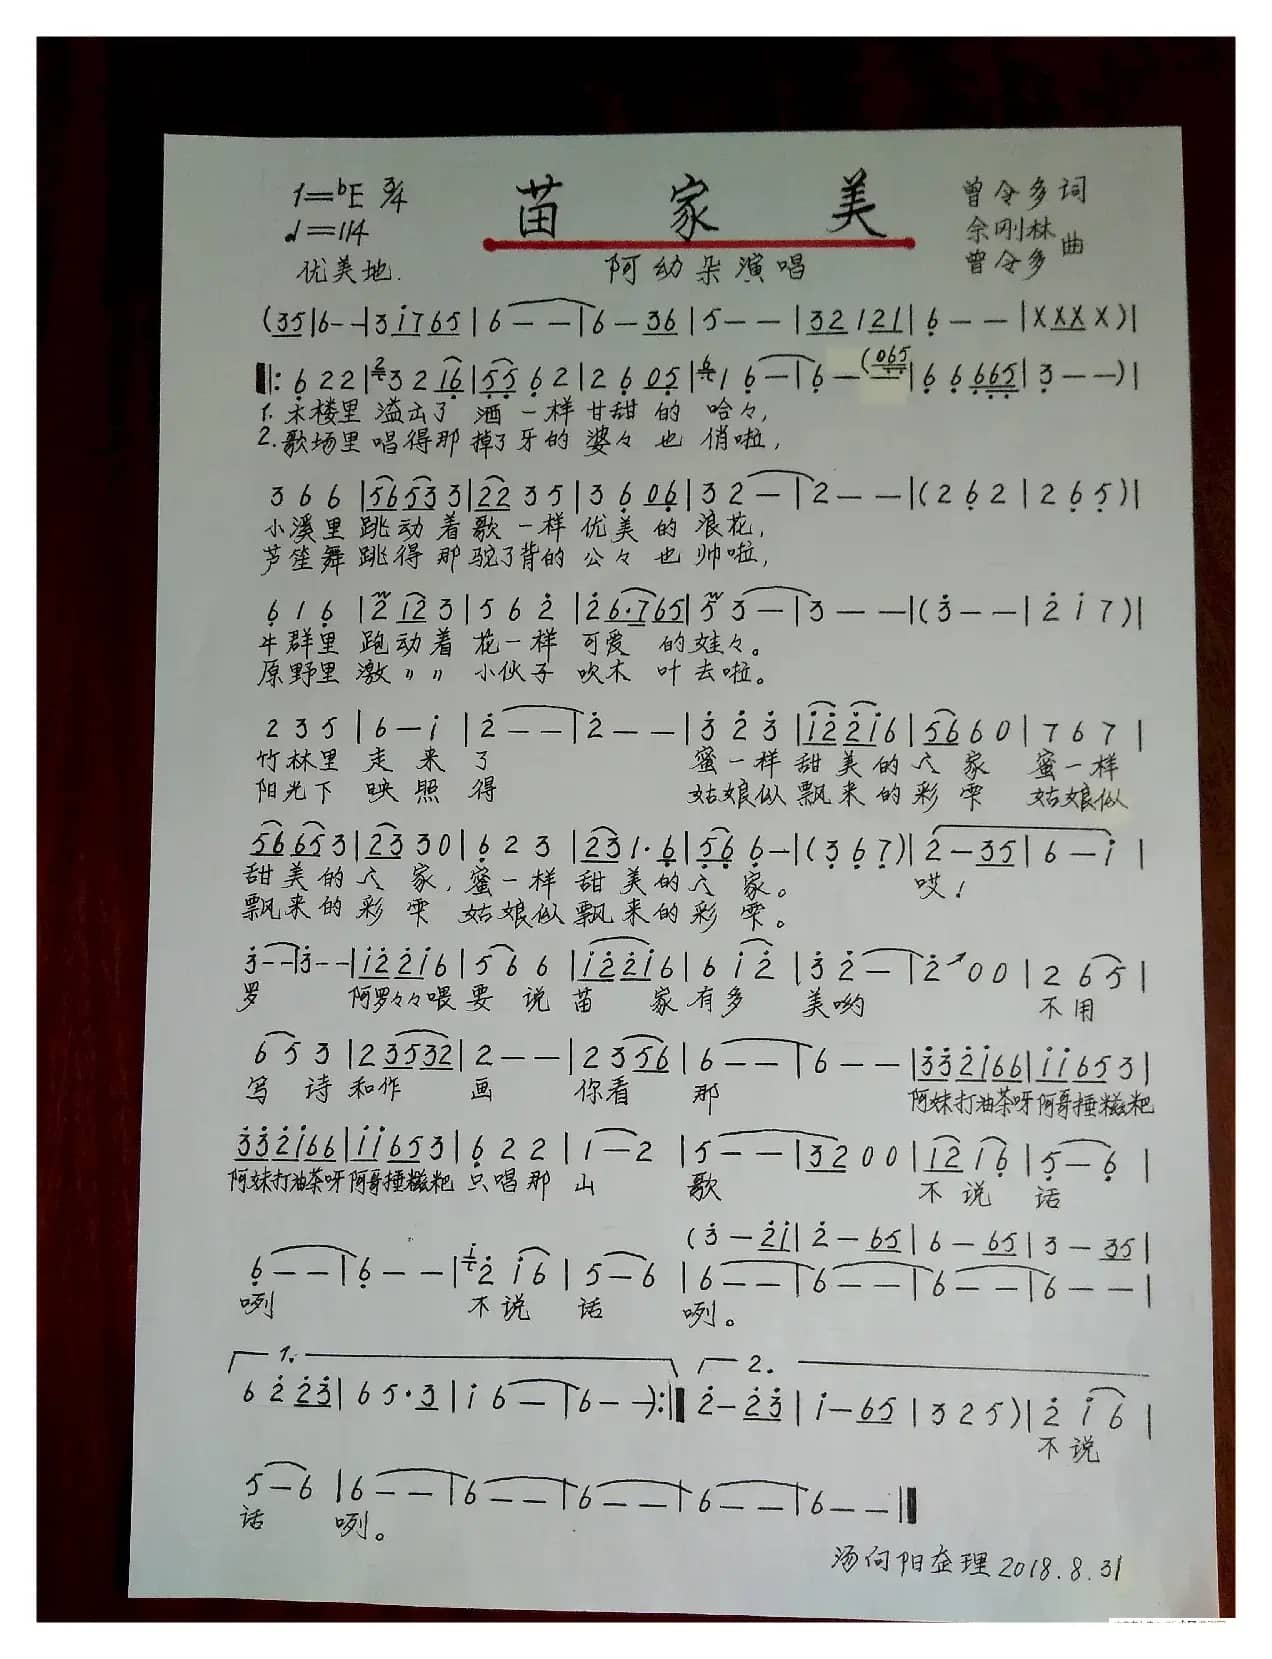 1=bE 3/4
苗家美
曾令多词
♩=114
余刚林
曾令多 曲
优美地.
阿幼朵演唱
(35|6--|3i765|6--|6-36|5--|32121|6--|XXXX)|
‖:622|23216|5562|2605|616-|6-(065|66665|3--)|
1.木楼里溢出了酒一样甘甜的哈々,
2.歌场里唱得那掉了牙的婆々也俏啦,
366|56533|2235|3606|32-|2--|(262|265)|
小溪里跳动着歌一样优美的浪花,
芦笙舞跳得那驼了背的公々也帅啦,
616|2123|562|26·765|53-|3--|(3--|2i7)|
牛群里跑动着花一样可爱的娃々。
原野里激〃〃小伙子吹木叶去啦。
235|6-i|2--|2--|323|i22i6|5660|767|
竹林里走来了 蜜一样甜美的亼家 蜜一样
阳光下映照得 姑娘似飘来的彩雫 姑娘似
56653|23330|623|231·6|566-|(367)|2-35|6-i|
甜美的亼家,蜜一样甜美的亼家。 哎!
飘来的彩雫 姑娘似飘来的彩雫。
3--|3--|i22i6|566|i22i6|6i2|32-|200|265|
罗 阿罗々々喂要说苗家有多美哟 不用
653|23532|2--|2356|6--|6--|332i66|ii653|
写诗和作画 你看那 阿妹打油茶呀阿哥捶糍粑
332i66|ii653|622|1-2|5--|3200|1216|5-6|
阿妹打油茶呀阿哥捶糍粑只唱那山歌 不说话
(3-2i|2-65|6-65|3-35|
6--|6--|i2i6|5-6|6--|6--|6--|6--|
咧 不说话咧。
1. 2.
6223|65·3|i6-|6--):‖2-23|i-65|325)|2i6|
不说
5-6|6--|6--|6--|6--|6--‖
话咧。
汤向阳夻理2018.8.31